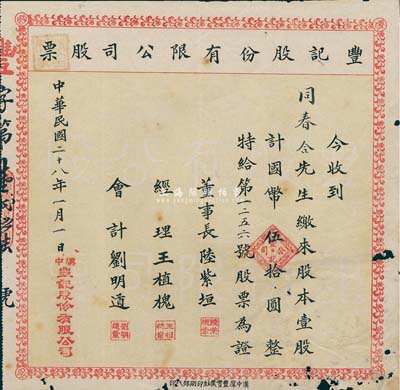 豐記股份有限公司股票
今收到
同春仝先生繳來股本壹股
計國幣伍拾圓整
特給第一二五六號股票為證
董事長陸紫垣
經理王植槐
會計劉明道
中華民國二十八年一月一日
漢中豐記股份有限公司
字第
號